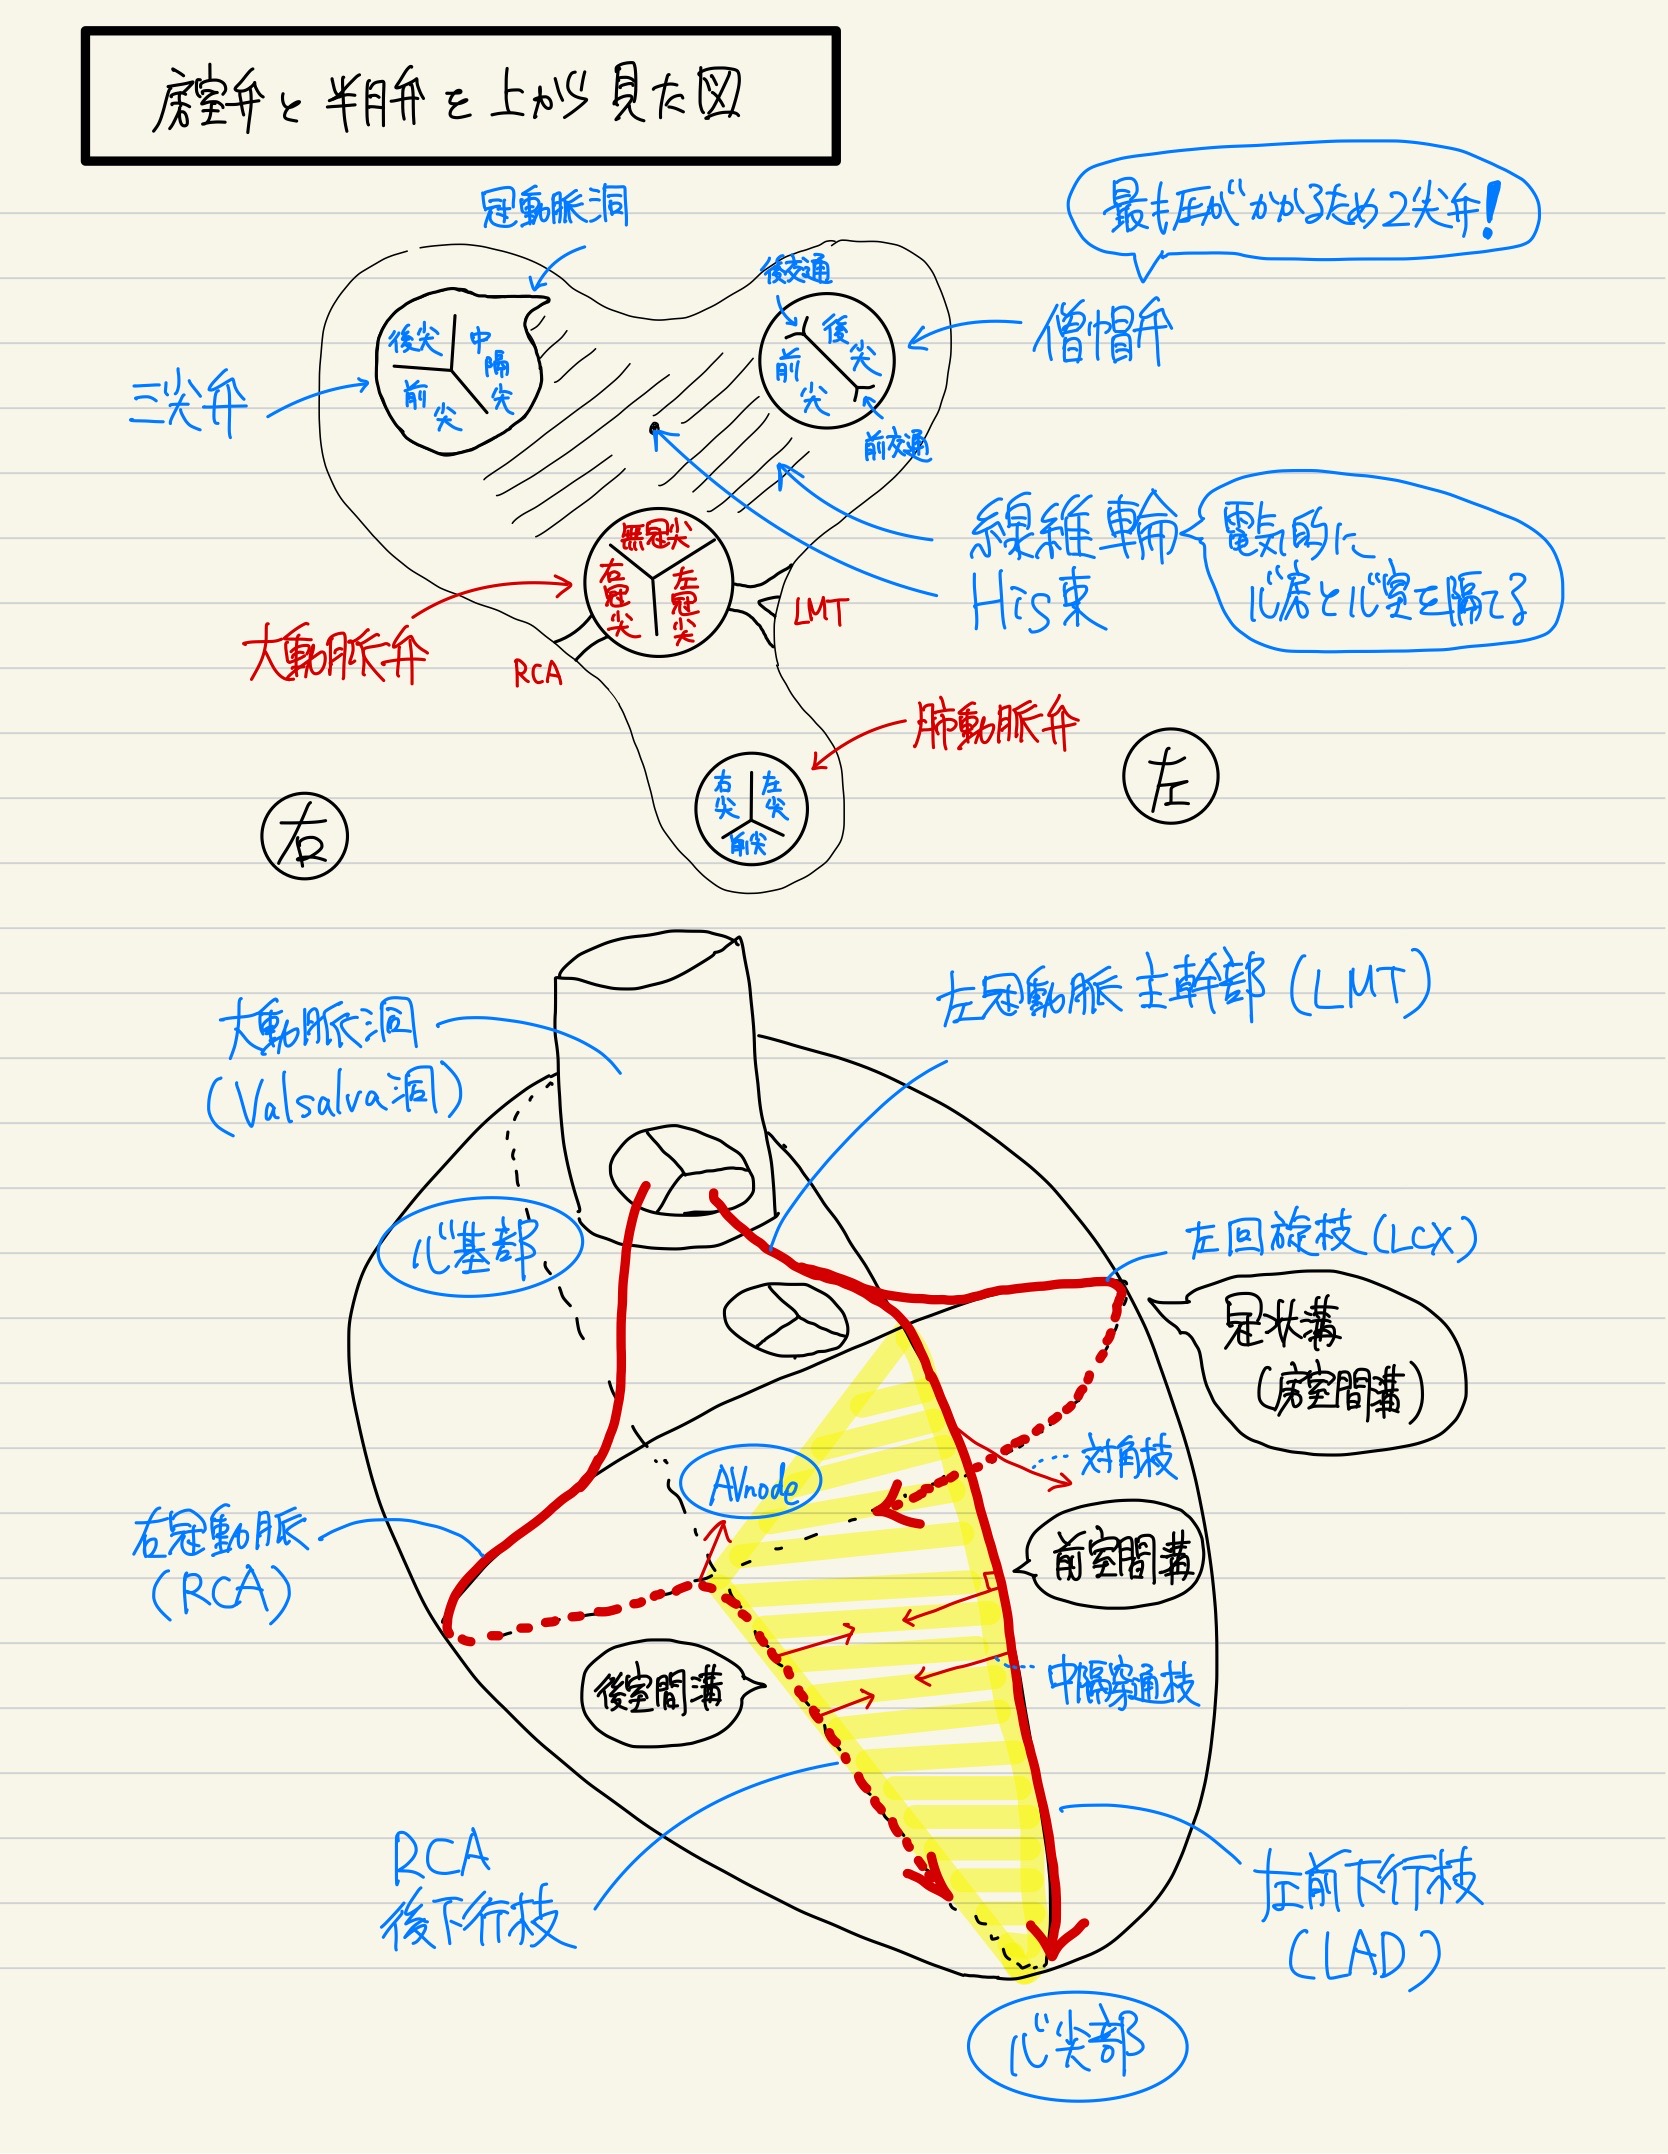 房室弁と半月弁を上から見た図
冠動脈洞
最も圧がかかるため2尖弁!
後交通
僧帽弁
後尖
中隔尖
前尖
後尖
前尖
三尖弁
前交通
線維輪
電気的に
心房と心室を隔てる
His束
無冠尖
右冠尖
左冠尖
LMT
大動脈弁
RCA
肺動脈弁
右尖
左尖
前尖
左
右
左冠動脈主幹部(LMT)
大動脈洞
(Valsalva洞)
心基部
左回旋枝(LCX)
冠状溝
(房室間溝)
対角枝
AVnode
右冠動脈
(RCA)
前室間溝
後室間溝
中隔穿通枝
RCA
後下行枝
左前下行枝
(LAD)
心尖部